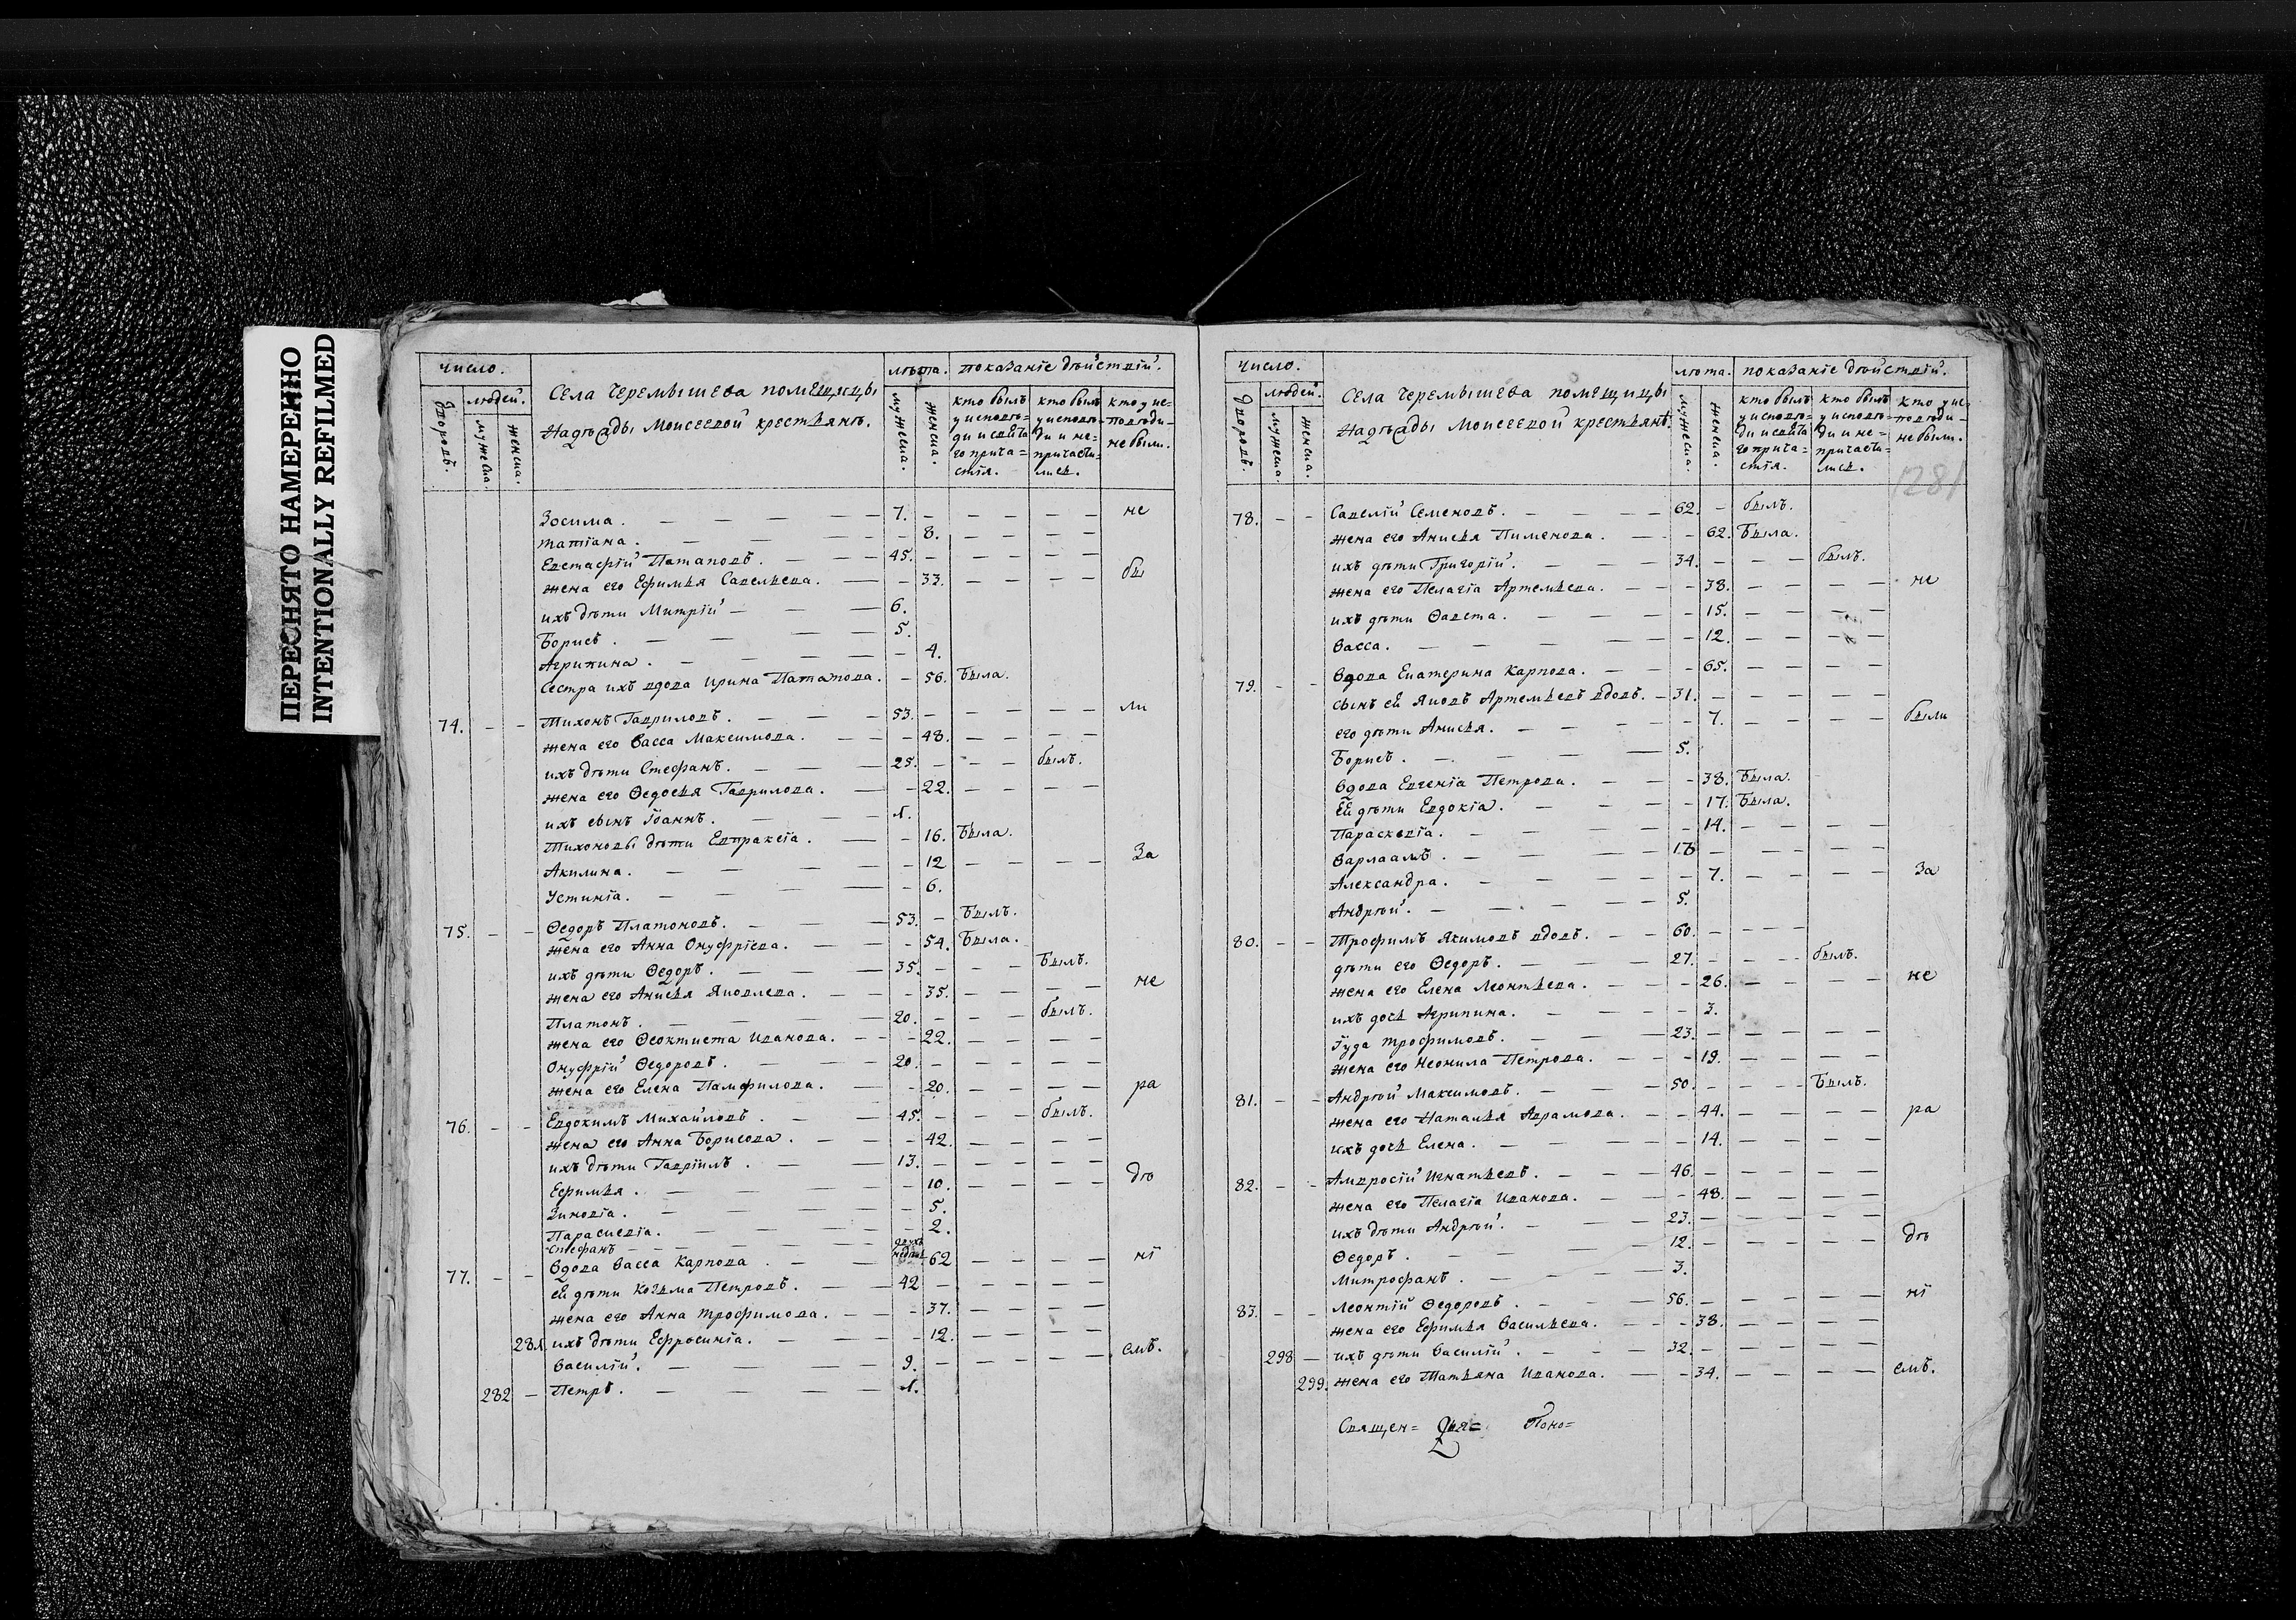 ПЕРЕСНЯТО НАМЕРЕННО
INTENTIONALLY REFILMED
число. лѣта. показаніе дѣйствій.
людей. Села Черемышева помѣщицы
дворовъ. мужеска. женска. Надѣжды Моисеевой крестьянъ. мужеска. женска.
кто былъ у исповѣ= ди и свята го прича= стія.
кто былъ у исповѣ= ди и не= причасти= лись.
кто у ис= повѣди= не были.
Зосима. 7. не
Татіана. 8.
Евстафій Патаповъ. 45.
жена его Ефимья Савельева. 33. бы
ихъ дѣти Митрій 6.
Борисъ. 5.
Агрипина. 4.
Сестра ихъ вдова Ирина Патапова. 56. Была.
74. Тихонъ Гавриловъ. 53. ли
жена его Васса Максимова. 48.
ихъ дѣти Стефанъ. 25. былъ.
жена его Ѳедосья Гаврилова. 22.
ихъ сынъ Іоаннъ. 1.
Тихоновы дѣти Евпраксіа. 16. Была.
Акилина. 12 За
Устиніа. 6.
75. Ѳедоръ Платоновъ. 53. Былъ.
жена его Анна Онуфріева. 54. Была.
ихъ дѣти Ѳедоръ. 35. Былъ.
жена его Анисья Яковлева. 35. не
Платонъ. 20. былъ.
жена его Ѳеоктиста Иванова. 22.
Онуфрій Ѳедоровъ. 20.
жена его Елена Памфилова. 20. ра
76. Евдокимъ Михайловъ. 45. былъ.
жена его Анна Борисова. 42.
ихъ дѣти Гавріилъ. 13.
Ефимья. 10. дѣ
Зиновіа. 5.
Параскевіа. 2.
Стефанъ двухъ недѣль
77. Вдова Васса Карпова. 62 ні
ей дѣти Козьма Петровъ. 42
жена его Анна Трофимова. 37.
281. ихъ дѣти Ефросиніа. 12.
Василій. 9. емъ.
282 Петръ. 1.
число. лѣта. показаніе дѣйствій.
людей. Села Черемышева помѣщицы
дворовъ. мужеска. женска. Надѣжды Моисеевой крестьянъ. мужеска. женска.
кто былъ у исповѣ= ди и свята го прича= стія.
кто былъ у исповѣ= ди и не= причасти= лись.
кто у ис= повѣди= не были.
1281
78. Савелій Семеновъ. 62. былъ.
жена его Анисья Пименова. 62. Была.
ихъ дѣти Григорій. 34. былъ.
жена его Пелагіа Артемьева. 38. не
ихъ дѣти Ѳавста. 15.
Васса. 12.
79. Вдова Екатерина Карпова. 65.
сынъ ей Яковъ Артемьевъ вдовъ. 31.
его дѣти Анисья. 7. были
Борисъ. 5.
Вдова Евгеніа Петрова. 38. Была.
ей дѣти Евдокіа. 17. Была.
Параскевіа. 14.
Варлаамъ.
Александра. 7. За
Андрѣй. 5.
80. Трофимъ Якимовъ вдовъ. 60.
дѣти его Ѳедоръ. 27. былъ.
жена его Елена Леонтьева. 26. не
ихъ дочь Агрипина. 3.
Іуда Трофимовъ. 23.
жена его Неонила Петрова. 19.
81. Андрѣй Максимовъ. 50. Былъ.
жена его Наталья Аврамова. 44. ра
ихъ дочь Елена. 14.
82. Амвросій Игнатьевъ. 46.
жена его Пелагіа Иванова. 48.
ихъ дѣти Андрѣй. 23.
Ѳедоръ. 12. дѣ
Митрофанъ. 3.
83. Леонтій Ѳедоровъ. 56. ні
жена его Ефимья Васильева. 38.
298 ихъ дѣти Василій. 32.
299. жена его Татьяна Иванова. 34. емъ.
Священ= Дья= Поно=